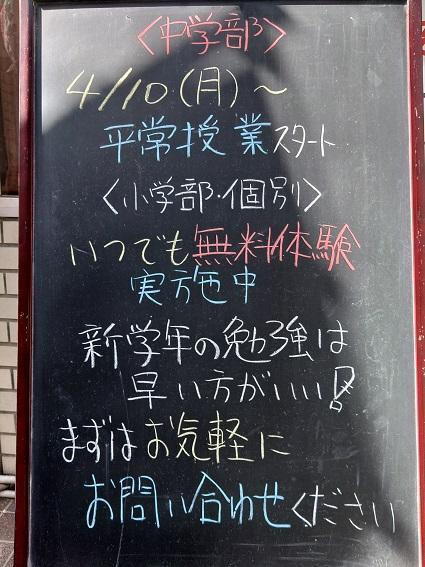 〈中学部〉
4/10(月)〜
平常授業スタート
〈小学部・個別〉
いつでも無料体験
実施中
新学年の勉強は
早い方がいい!
まずはお気軽に
お問い合わせください